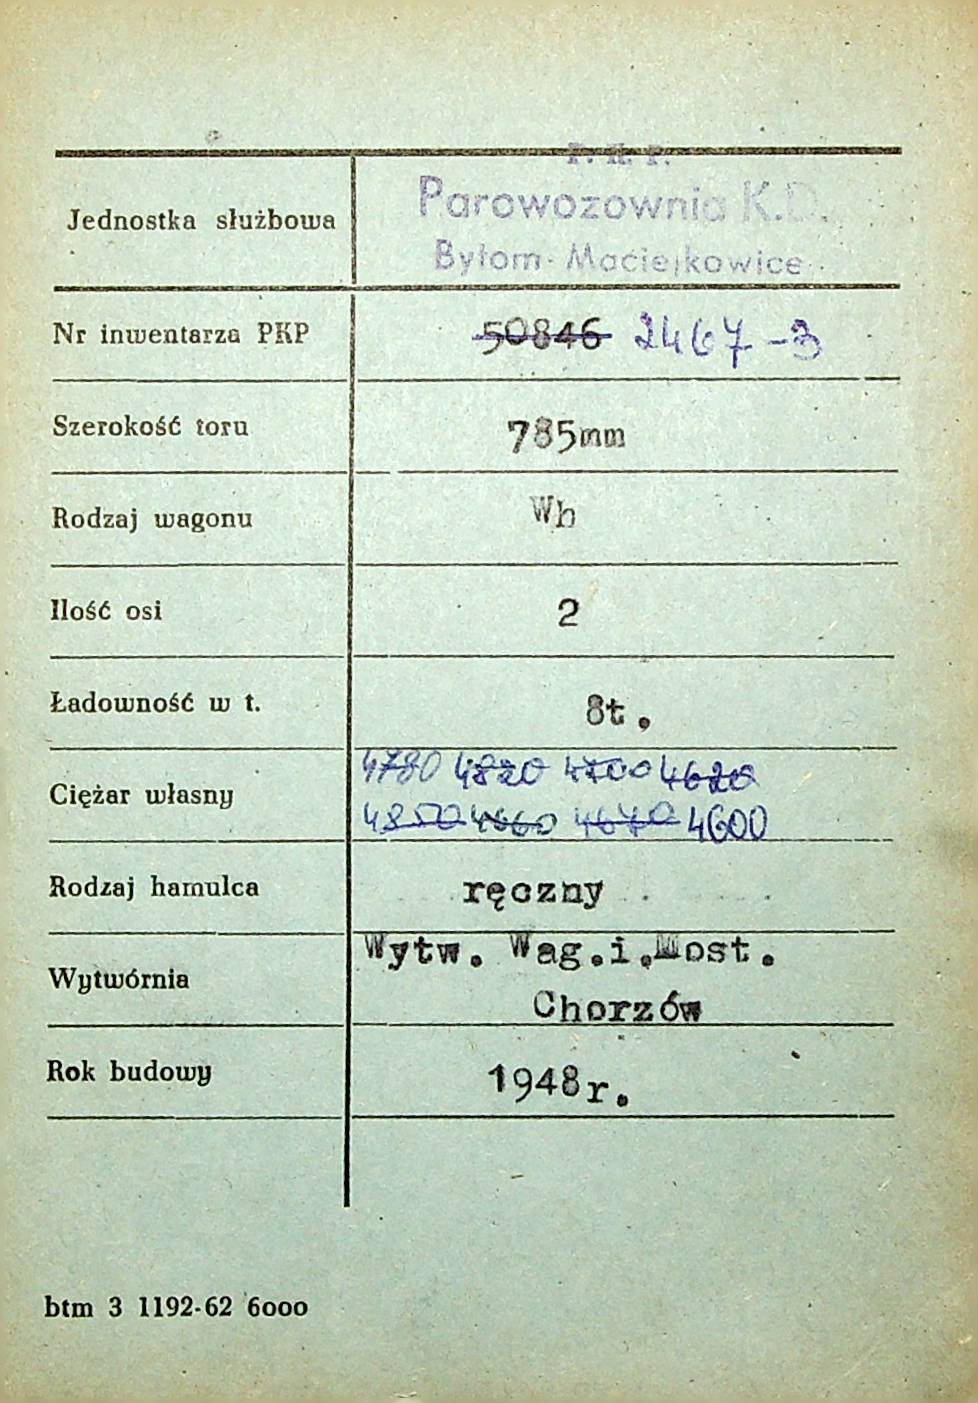 P. K. P.
Jednostka służbowa Parowozownia K.D.
Bytom-Maciejkowice
Nr inwentarza PKP 50846 2467-3
Szerokość toru 785mm
Rodzaj wagonu Wb
Ilość osi 2
Ładowność w t. 8t.
Ciężar własny 4780 4820 4700 4620
4850 4660 4640 4600
Rodzaj hamulca ręczny
Wytwórnia Wytw. Wag.i.Most.
Chorzów
Rok budowy 1948r.
btm 3 1192-62 6000